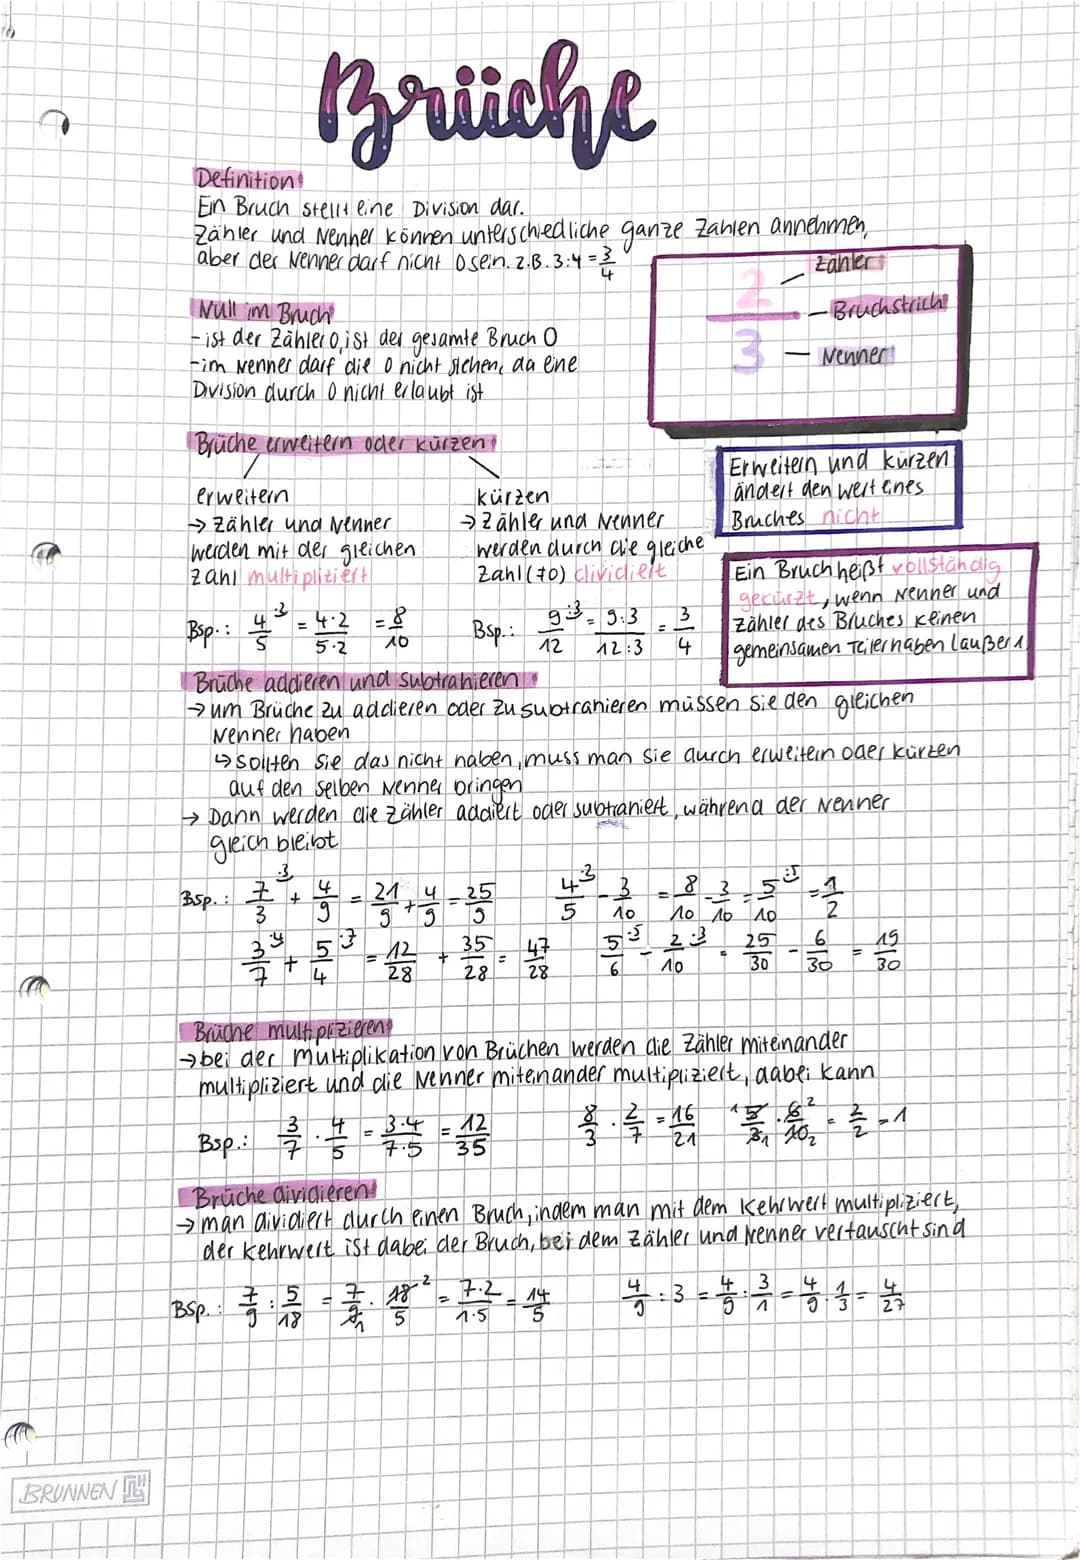 Brüche
Definition
Ein Bruch stellt eine Division dar.
Zähler und Nenner können unterschiedliche ganze Zahlen annehmen,
aber der Nenner darf nicht 0 sein. z.B. 3:4 = 3/4
2/3
Zähler
Bruchstrich
Nenner
Null im Bruch
- ist der Zähler 0, ist der gesamte Bruch 0
- im Nenner darf die 0 nicht stehen, da eine
Division durch 0 nicht erlaubt ist
Brüche erweitern oder kürzen
erweitern
→ Zähler und Nenner
werden mit der gleichen
Zahl multiplitiert
Bsp.: 4/5 = 4·2/5·2 = 8/10
kürzen
→ Zähler und Nenner
werden durch die gleiche
Zahl (≠0) dividiert
Bsp.: 9/12 :3 = 9:3/12:3 = 3/4
Erweitern und kürzen
ändert den Wert eines
Bruches nicht
Ein Bruch heißt vollständig
gekürzt, wenn Nenner und
Zähler des Bruches keinen
gemeinsamen Teiler haben (außer 1
Brüche addieren und subtrahieren
→ um Brüche zu addieren oder zu subtrahieren müssen sie den gleichen
Nenner haben
↳ sollten sie das nicht haben, muss man sie durch erweitern oder kürzen
auf den selben Nenner bringen
→ Dann werden die Zähler addiert oder subtrahiert, während der Nenner
gleich bleibt
Bsp.: 7/3 ·3 + 4/9 = 21/9 + 4/9 = 25/9
4/5 - 3/10 = 8/10 - 3/10 = 5/10 :5 = 1/2
3/7 ·4 + 5/4 ·7 = 12/28 + 35/28 = 47/28
5/6 ·5 - 2/10 ·3 = 25/30 - 6/30 = 19/30
Brüche multiplizieren
→ bei der Multiplikation von Brüchen werden die Zähler miteinander
multipliziert und die Nenner miteinander multipliziert, dabei kann
Bsp.: 3/7 · 4/5 = 3·4/7·5 = 12/35
8/3 · 2/7 = 16/21
5/3 · 6/10 = 2/2 = 1
Brüche dividieren
→ man dividiert durch einen Bruch, indem man mit dem Kehrwert multipliziert,
der Kehrwert ist dabei der Bruch, bei dem Zähler und Nenner vertauscht sind
Bsp.: 7/9 : 5/18 = 7/9 · 18/5 = 7·2/1·5 = 14/5
4/9 : 3 = 4/9 : 3/1 = 4/9 · 1/3 = 4/27
BRUNNEN